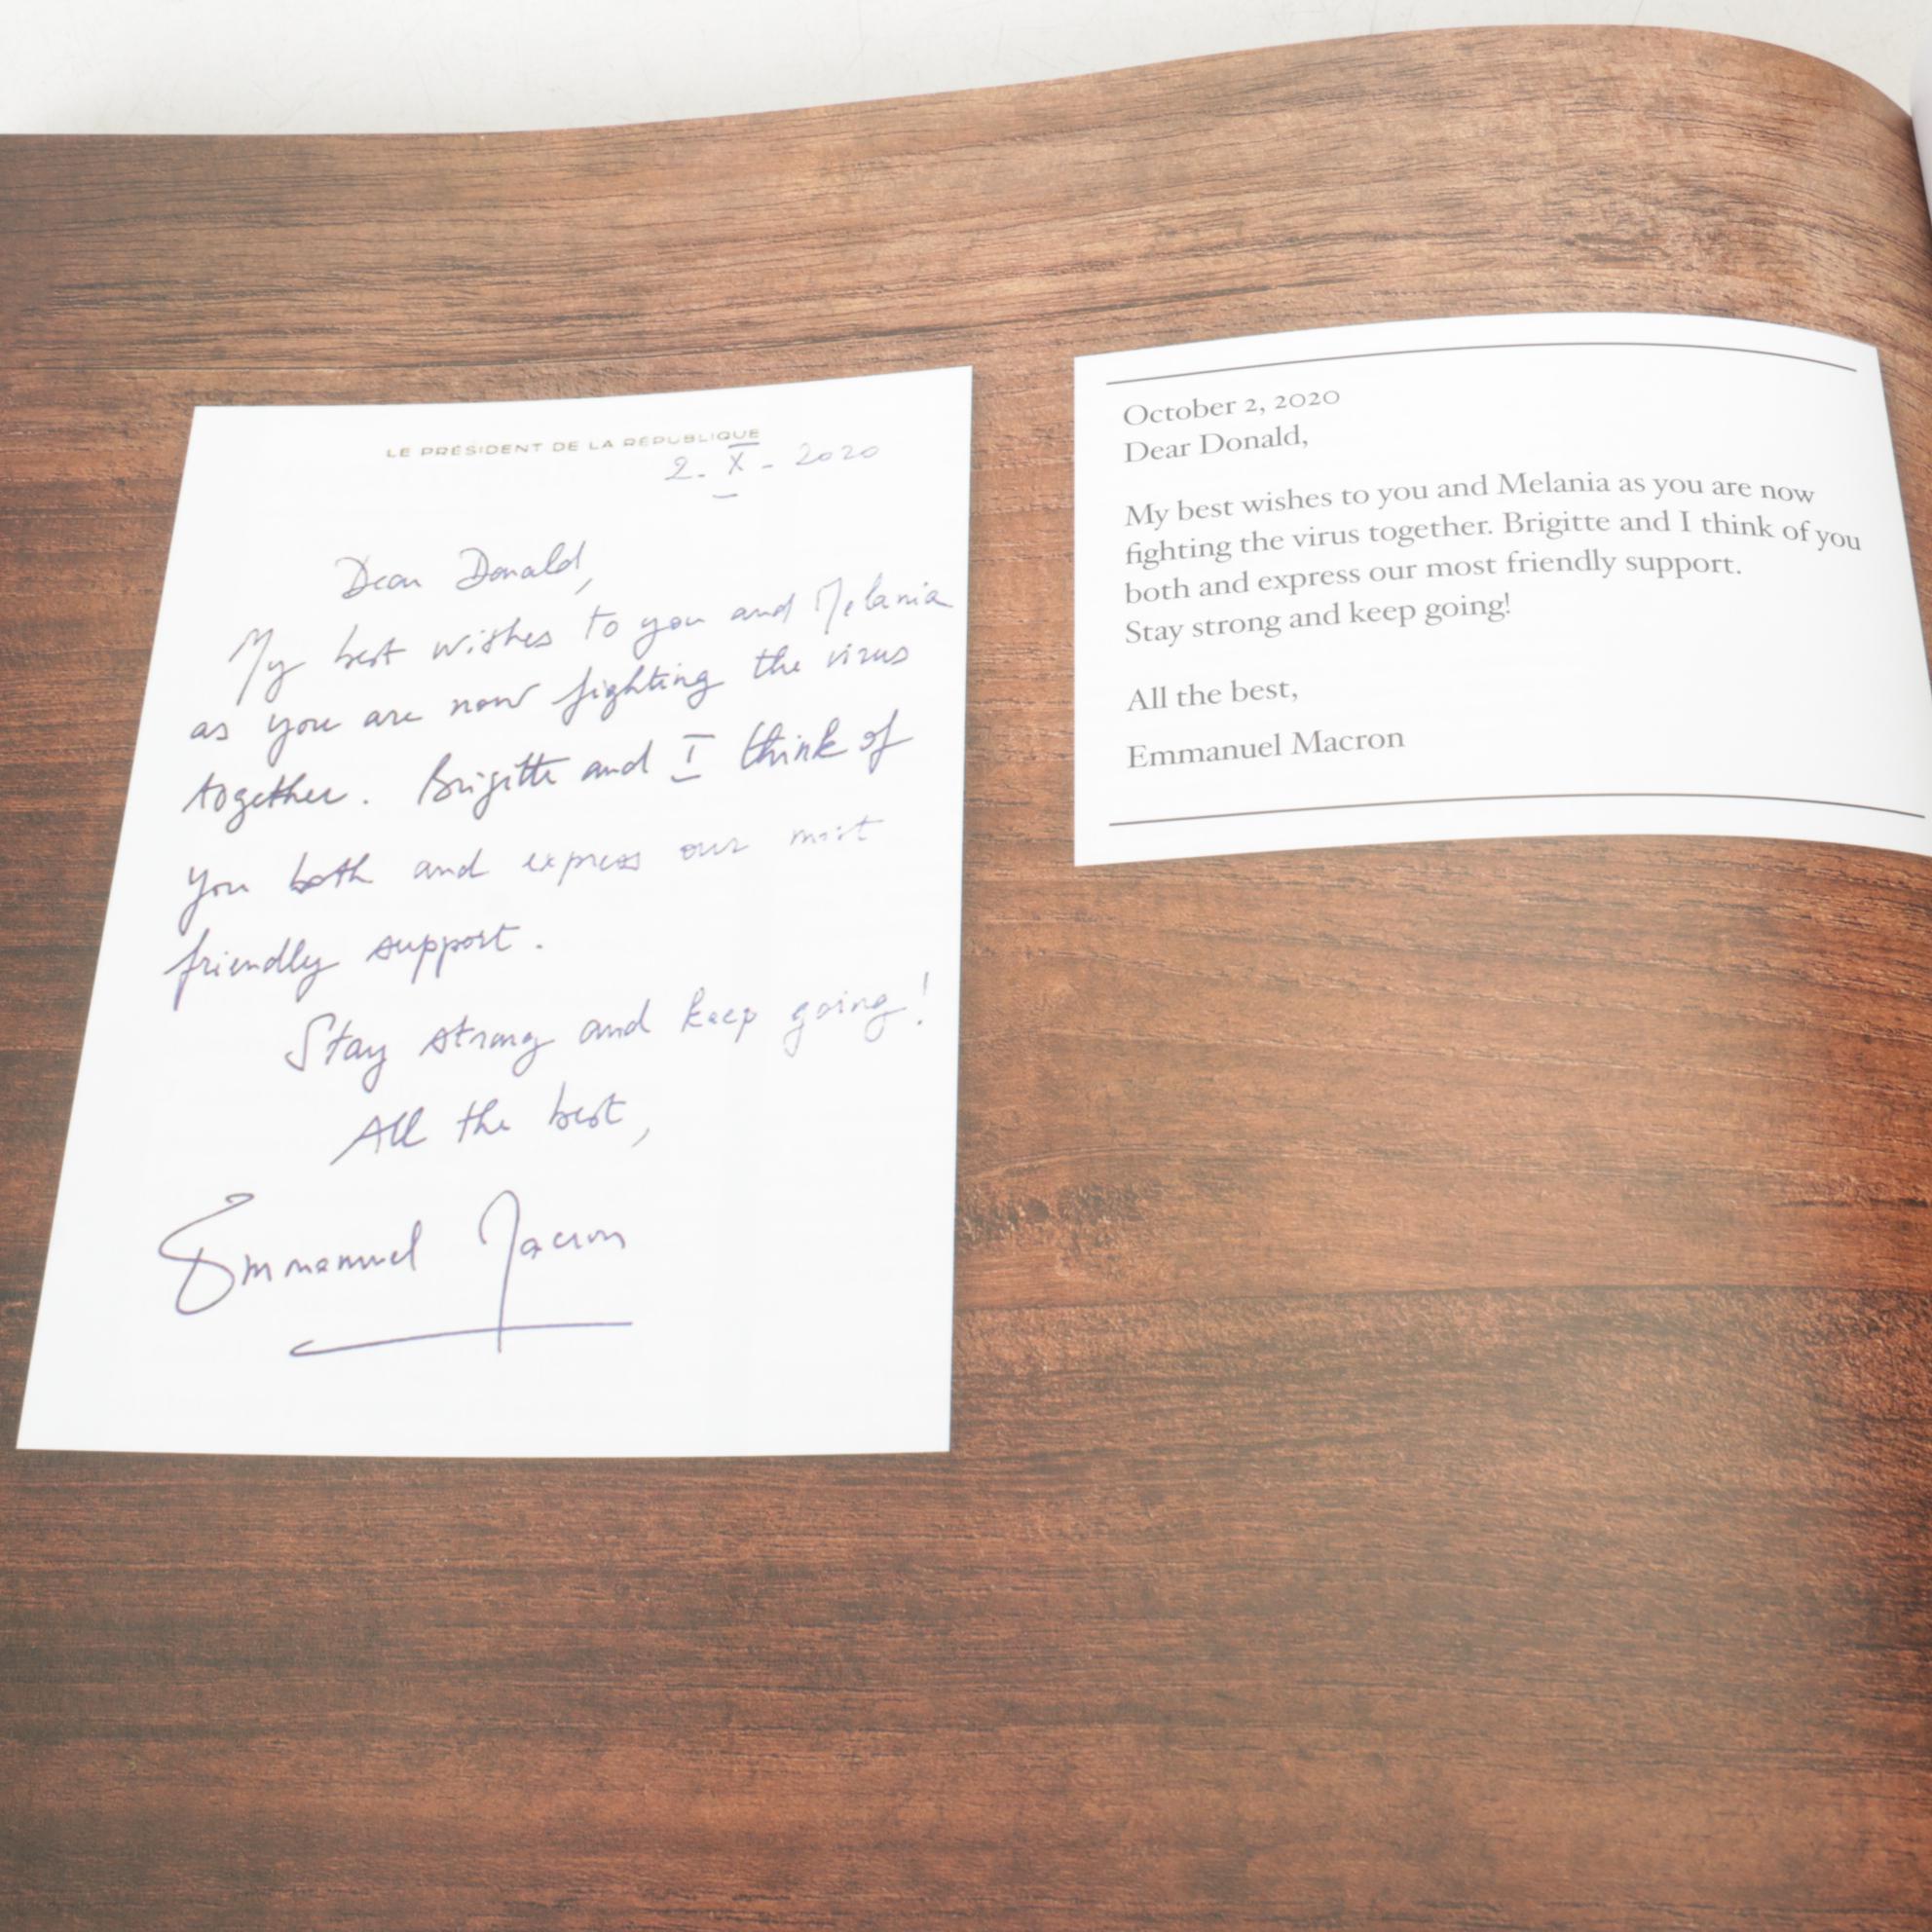 LE PRÉSIDENT DE LA RÉPUBLIQUE
2. X - 2020
Dear Donald,
My best wishes to you and Melania
as you are now fighting the virus
together. Brigitte and I think of
you both and express our most
friendly support.
Stay strong and keep going!
All the best,
Emmanuel Macron
October 2, 2020
Dear Donald,
My best wishes to you and Melania as you are now
fighting the virus together. Brigitte and I think of you
both and express our most friendly support.
Stay strong and keep going!
All the best,
Emmanuel Macron